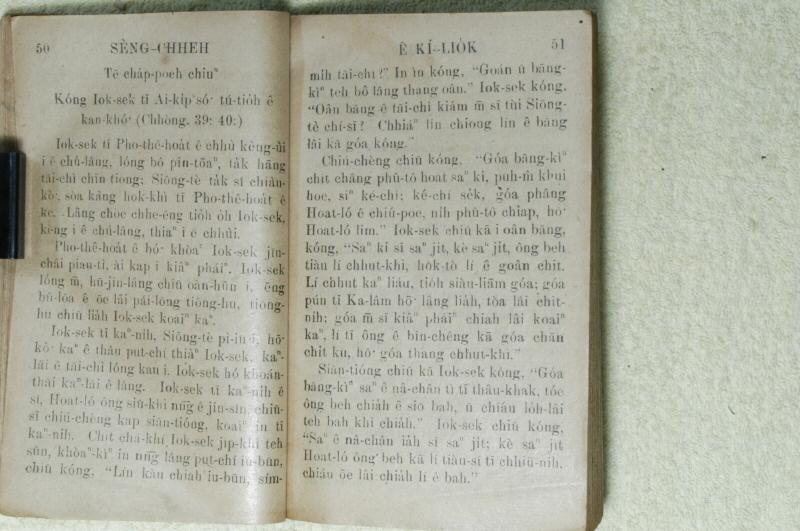 50 SÈNG-CHHEH
Tē cháp-poeh chiuⁿ
Kóng Iok-sek tī Ai-ki̍p só͘ tú-tio̍h ê
kan-khó͘ (Chhòng. 39: 40:)
Iok-sek tī Pho-thê-hoat ê chhù kèng-ūi
i ê chú-lâng, lóng bô pîn-tōaⁿ, ta̍k hāng
tāi-chì chīn tiong; Siōng-tè ta̍k sî chiàu-
kò͘, sòa kàng hok-khì tī Pho-thê-hoat ê
ke. Lâng choe chhe-ēng tio̍h o̍h Iok-sek,
kèng i ê chú-lâng, thiaⁿ i ê chhùi.
Pho-thê-hoat ê bó͘ khòaⁿ Iok-sek jîn-
châi piau-tì, ài kap i kiâⁿ pháiⁿ. Iok-sek
lóng m̄, hū-jîn-lâng chiū oàn-hūn i, ēng
bū-lōa ê ōe lâi pái-lōng tiōng-hu, tiong-
hu chiū lia̍h Iok-sek koaiⁿ kaⁿ.
Iok-sek tī kaⁿ-nih, Siōng-tè pì-iū i, hō͘
kò͘ kaⁿ ê thâu put-chí thiàⁿ Iok-sek, kaⁿ-
lāi ê tāi-chì lóng kau i. Iok-sek hó khoán-
thāi kaⁿ-lāi ê lâng. Iok-sek tī kaⁿ-nih ê
sî, Hoat-ló ông siū-khì nn̄g ê jîn-sîn, chiū-
sī chiú-chèng kap siān-tióng, koaiⁿ in tī
kaⁿ-nih. Chi̍t chá-khí Iok-sek ji̍p-khì teh
sûn, khòaⁿ-kìⁿ in nn̄g lâng put-chí iu-būn,
chiū kóng, "Lín kàu chiah iu-būn, sím-
Ê KÌ-LIO̍K 51
mi̍h tāi-chì?" In ìn kóng, "Goán ū bāng-
kìⁿ teh bô lâng thang oân." Iok-sek kóng,
"Oân bāng ê tāi-chì kiám m̄ sī tùi Siōng-
tè chí-sī? Chhiáⁿ lín chiong lín ê bāng
lâi kā góa kóng."
Chiú-chèng chiū kóng. "Góa bāng-kìⁿ
chi̍t châng phû-tô hoat saⁿ ki, puh-íⁿ khui
hoe, siⁿ ké-chí; ké-chí se̍k, góa phâng
Hoat-ló ê chiú-poe, nih phû-tô chiap, hō͘
Hoat-ló lim." Iok-sek chiū kā i oân bāng,
kóng, "Saⁿ ki sī saⁿ ji̍t, kè saⁿ ji̍t, ông beh
tiàu lí chhut-khì, ho̍k-tò lí ê goân chit.
Lí chhut kaⁿ liáu, tio̍h siàu-liām góa; góa
pún tī Ka-lâm hō͘ lâng lia̍h, tòa lâi chit-
nih; góa m̄ sī kiâⁿ pháiⁿ chiah lâi koaiⁿ
kaⁿ, lí tī ông ê bīn-chêng kā góa chān
chi̍t ku, hō͘ góa thang chhut-khì."
Siān-tióng chiū kā Iok-sek kóng, "Góa
bāng-kìⁿ saⁿ ê nâ-chân tì tī thâu-khak, tóe
ông beh chia̍h ê sio bah, ū chiáu lo̍h-lâi
teh bah khì chia̍h." Iok-sek chiū kóng,
"Saⁿ ê nâ-chân ia̍h sī saⁿ ji̍t; kè saⁿ ji̍t
Hoat-ló ông beh kā lí tiàu-sí tī chhiū-nih,
chiáu ōe lâi chia̍h lí ê bah."